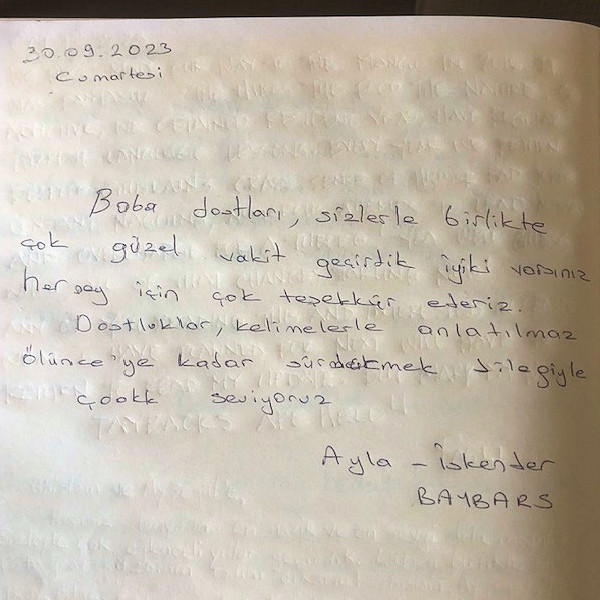 30.09.2023
Cumartesi
Baba dostları, sizlerle birlikte
çok güzel vakit geçirdik iyiki varsınız
herşey için çok teşekkür ederiz.
Dostluklar, kelimelerle anlatılmaz
ölünce'ye kadar dileğiyle
çookk seviyoruz
Ayla - İskender
BAYBARS